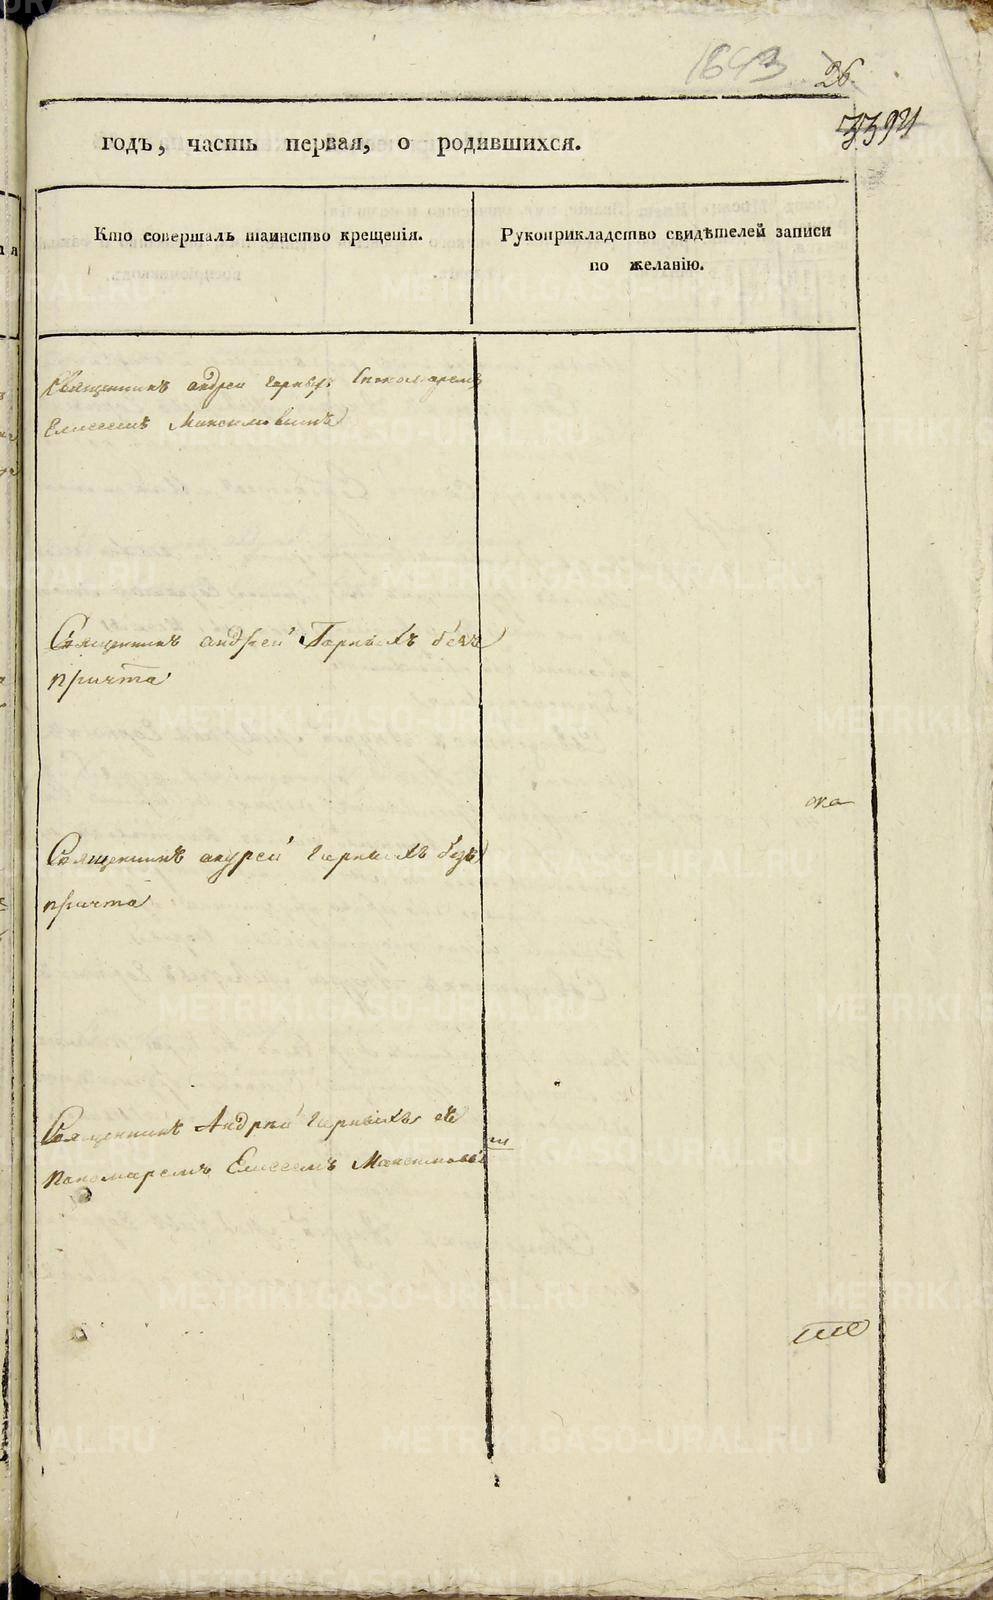 1843 26
годъ, часть первая, о родившихся.
Кто совершалъ таинство крещенія.
Рукоприкладство свидѣтелей записи
по желанію.
Священникъ андреи
Елисеемъ Максимовымъ
Священникъ андрей Горныхъ безъ
причта
Священникъ андрей Горныхъ безъ
причта
Священникъ Андрей Горныхъ съ
пономаремъ Елисеемъ
METRIKI.GASO-URAL.RU